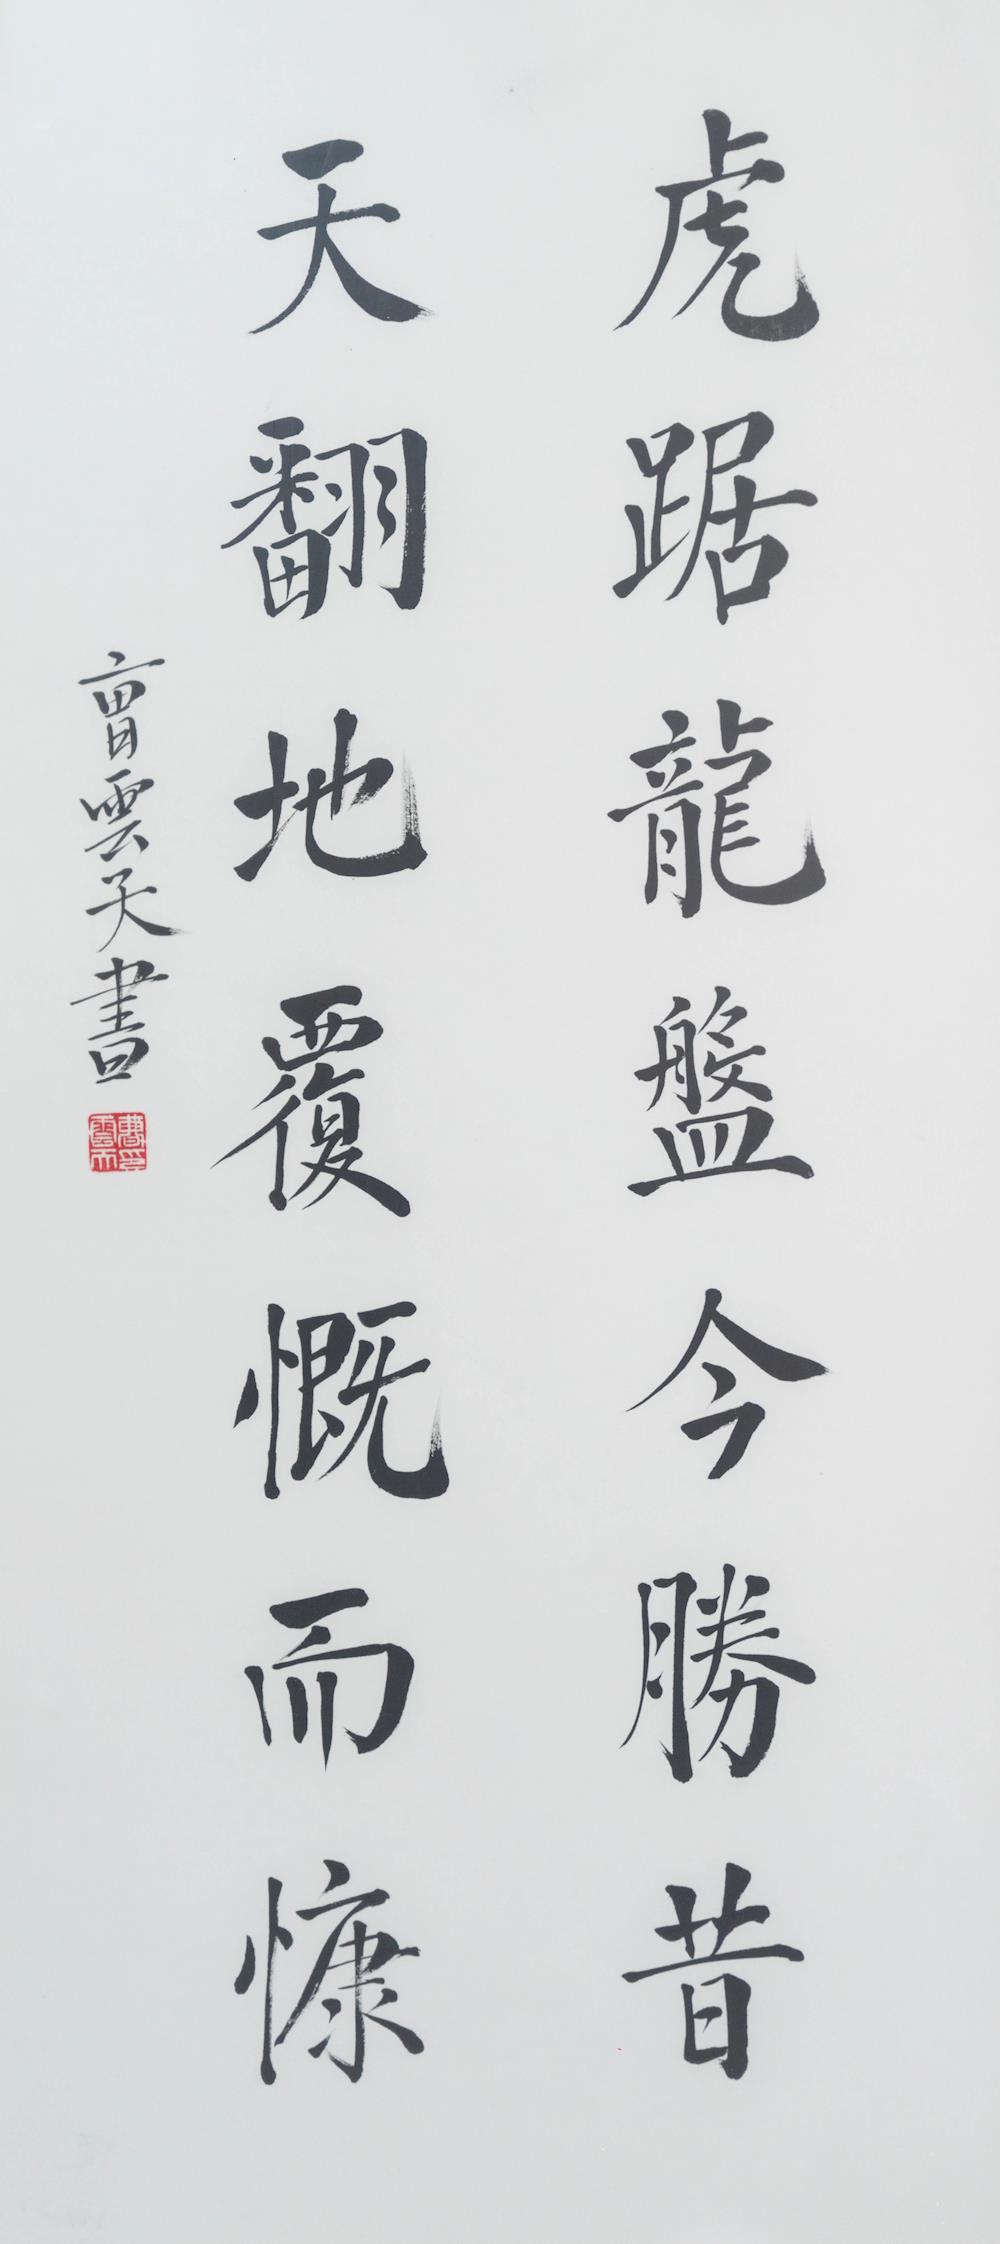 虎踞龍盤今勝昔
天翻地覆慨而慷
曹雲天書
曹印
雲天